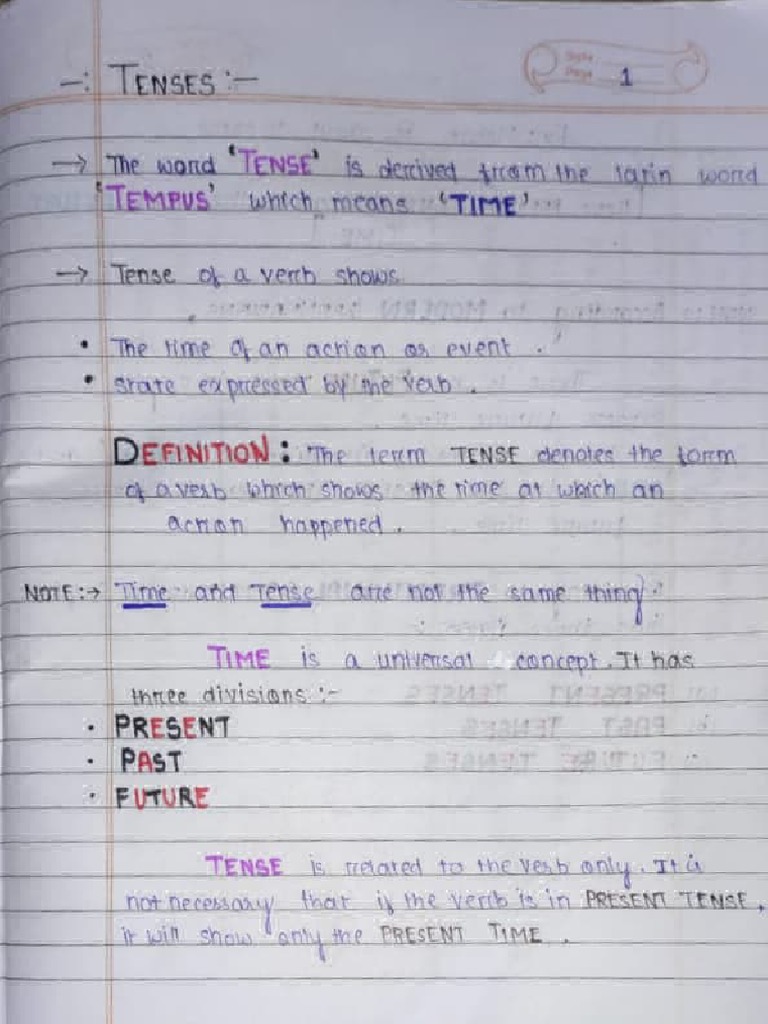 -: TENSES :-
1
→ The word 'TENSE' is derived from the latin word
'TEMPUS' which means 'TIME'
→ Tense of a verb shows
• The time of an action or event .
• state expressed by the verb .
DEFINITION : The term TENSE denotes the form
of a verb which shows the time at which an
action happened .
NOTE :→ Time and Tense are not the same thing.
TIME is a universal concept. It has
three divisions :-
• PRESENT
• PAST
• FUTURE
TENSE is related to the verb only. It is
not necessary that if the verb is in PRESENT TENSE,
it will show only the PRESENT TIME .